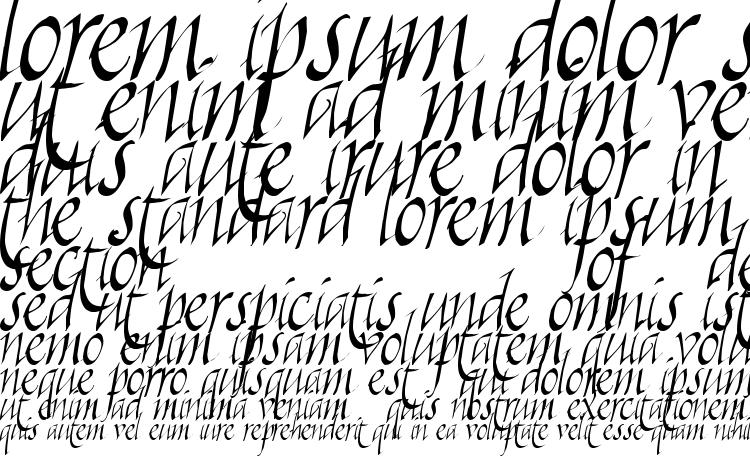 lorem ipsum dolor s
ut enim ad minim ve
duis aute irure dolor in
the standard lorem ipsum
section of de
sed ut perspiciatis unde omnis ist
nemo enim ipsam voluptatem quia volu
neque porro quisquam est qui dolorem ipsum
ut enim ad minima veniam quis nostrum exercitationem
quis autem vel eum iure reprehenderit qui in ea voluptate velit esse quam nihil